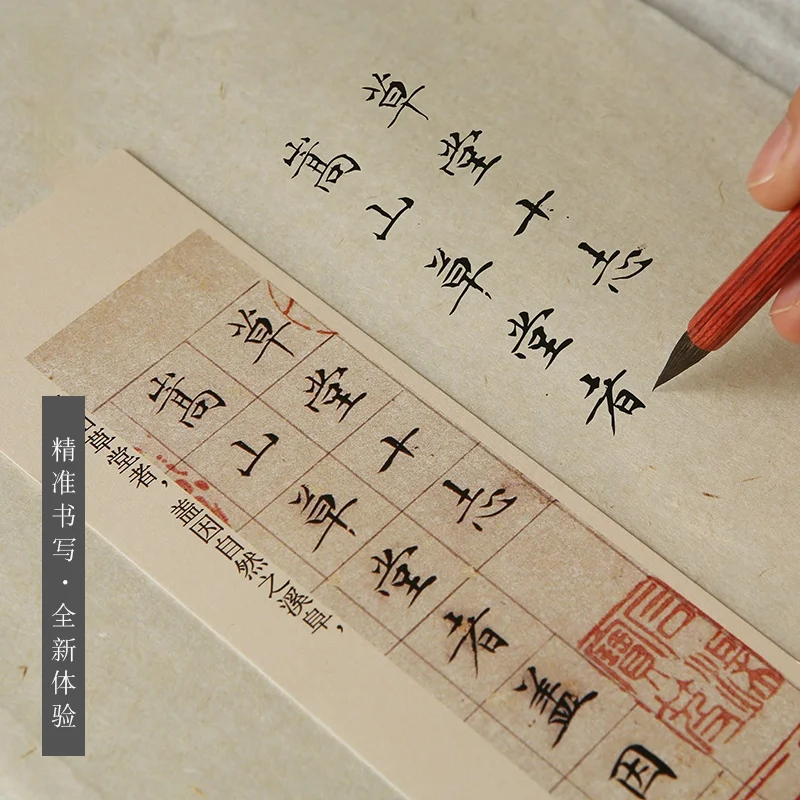 草堂十志
嵩山草堂者
草堂十志
嵩山草堂者盖因
草堂者，
盖因自然之溪阜，
精准书写·全新体验